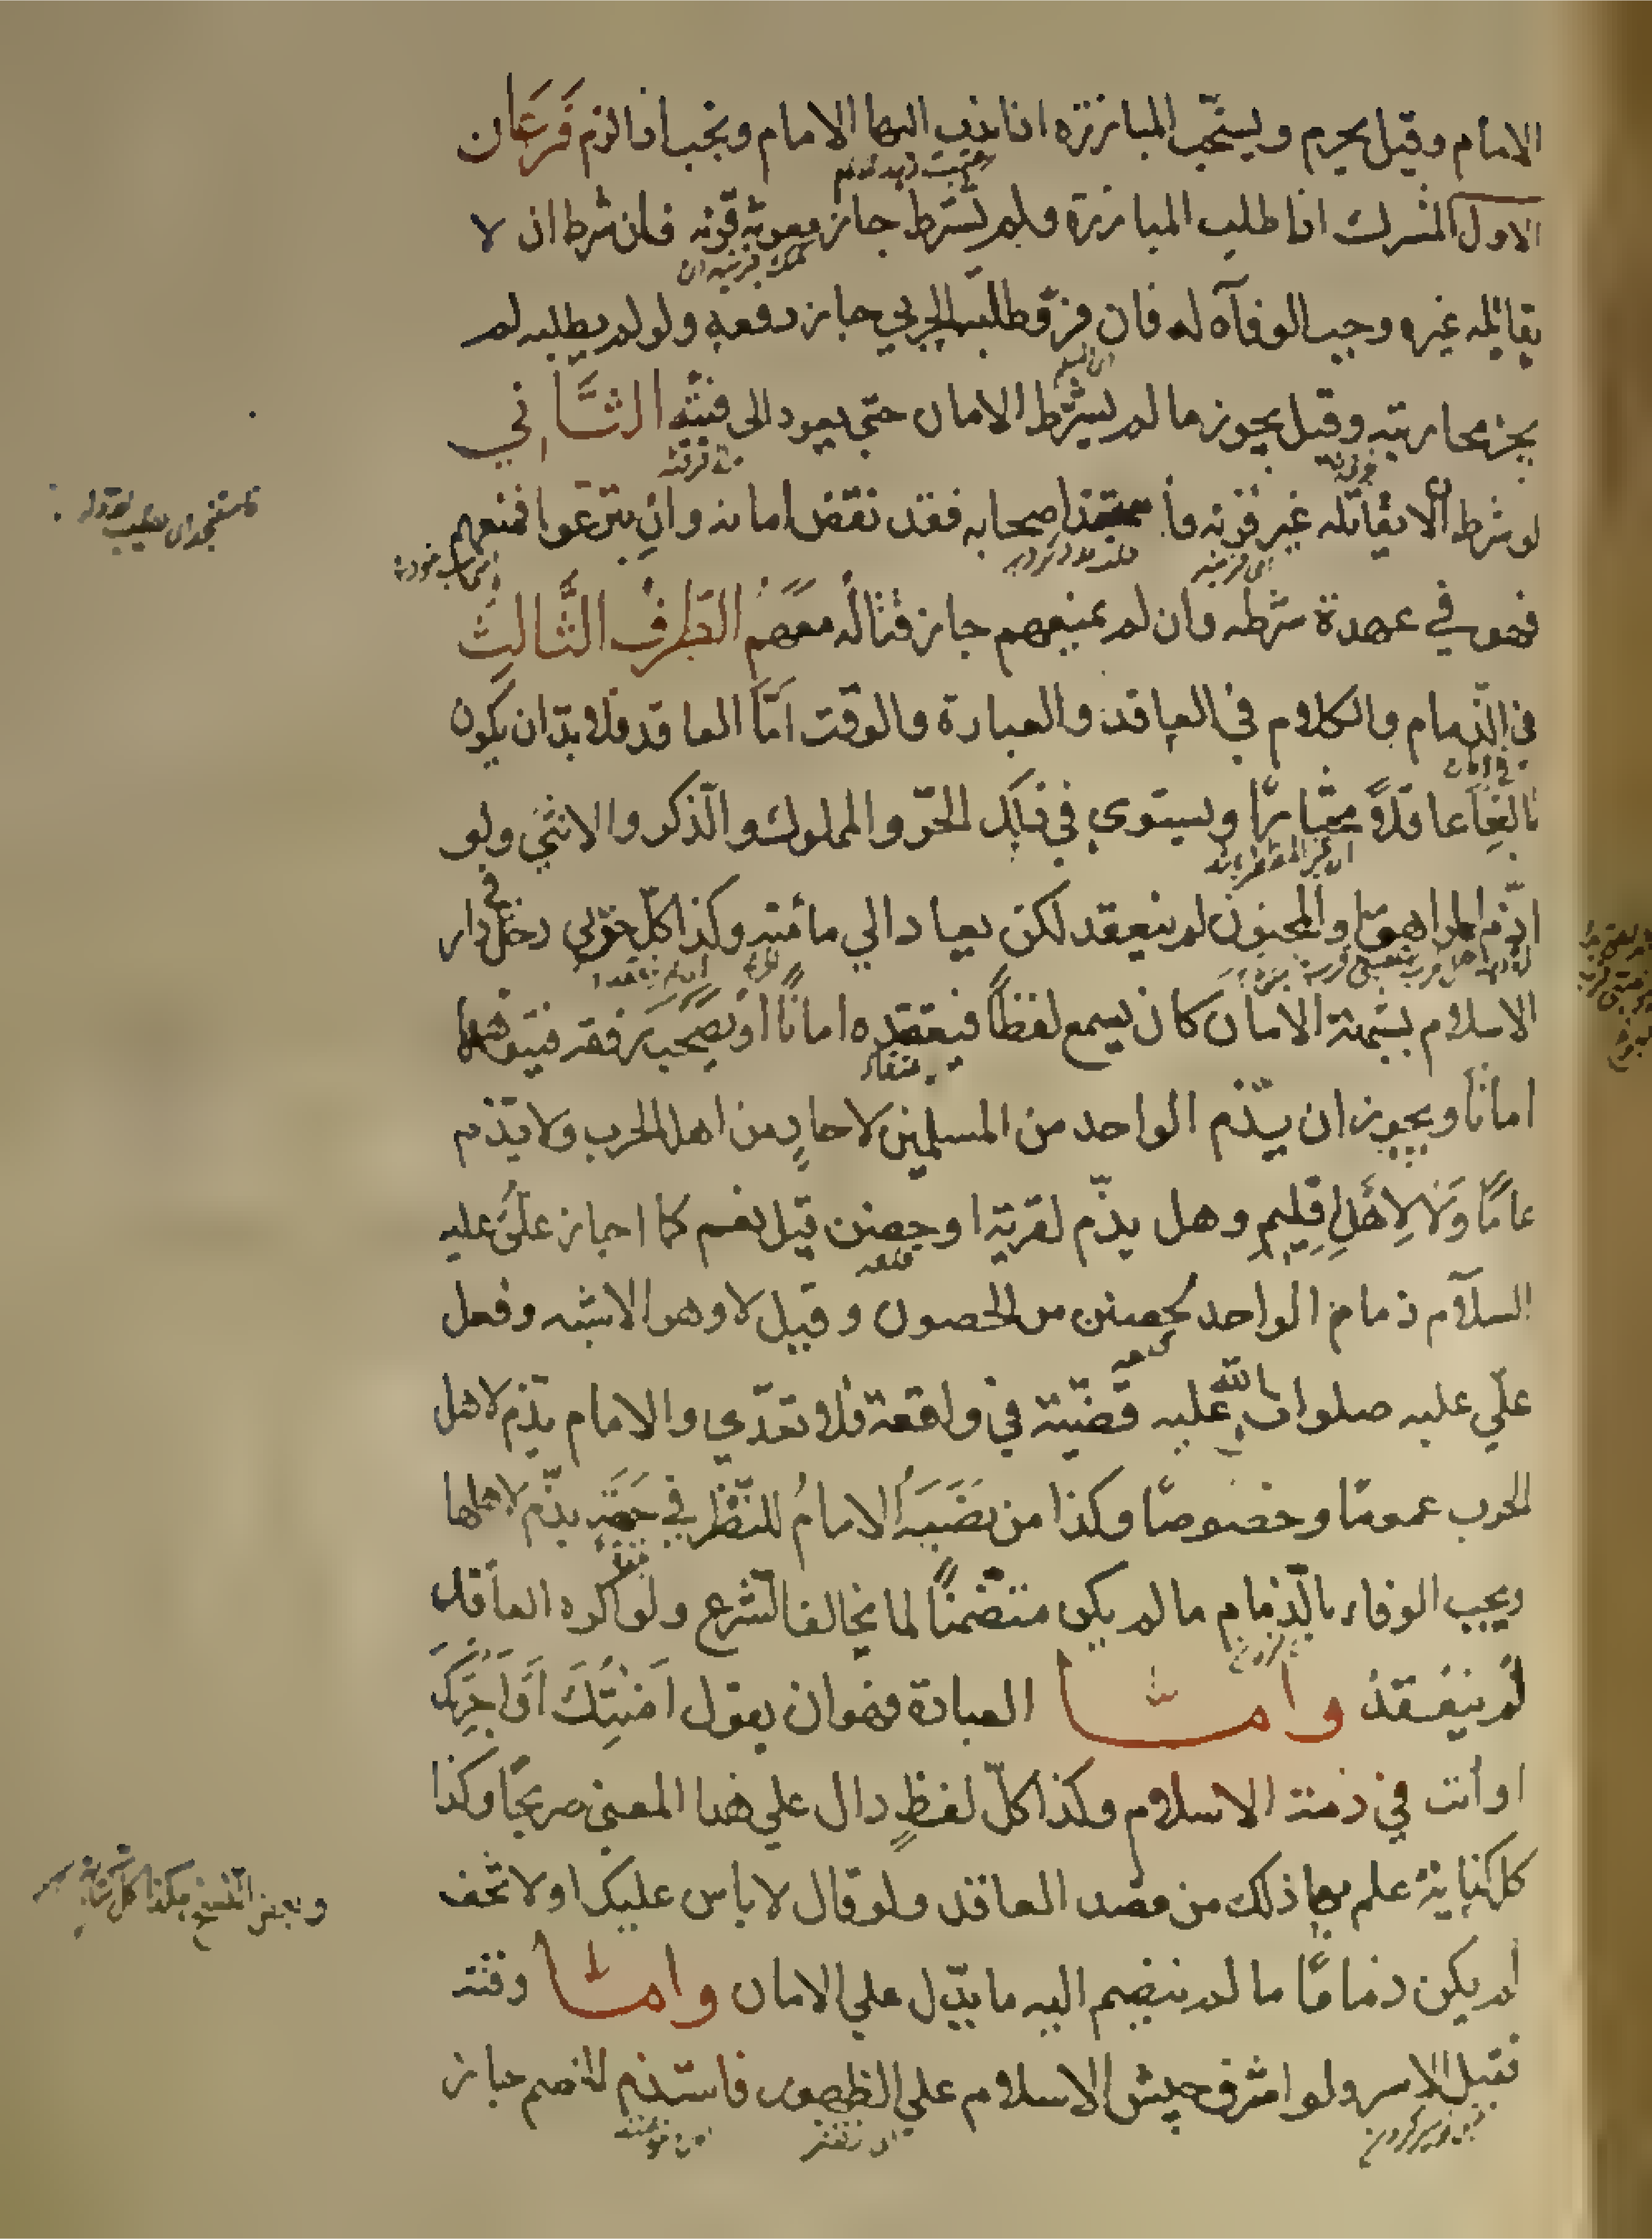 الامام وقيل يحرم ويستحّب المبارزة اذا ندب اليها الامام ويجب اذا الزم فَرعَان
الاول المشرك اذا طلب المبارزة ولم يشترط جاز معونة قرنه فان شرط ان لا
يقاتله غيره وجب الوفآء له فان فرّ وطلبه الحربي جاز دفعه ولو لم يطلبه لم
يجز محاربته وقيل يجوز ما لم يشترط الامان حتى يعود الى فئته الثَّاني
لو شرط ألا يقاتله غير قرنه فاستنجد اصحابه فقد نقض امانه وان تبرّعوا فمنعهم
فهو في عهدة شرطه وان لم يمنعهم جاز قتاله معهم الطَّرف الثَّالث
في الذّمام والكلام في العاقد والعبارة والوقت امّا العاقد فلا بدّ ان يكون
بالغًا عاقلاً مختارًا ويستوي في ذلك الحّر والمملوك والذكر والانثي ولو
اذّم المراهق او المجنون لم ينعقد لكن يعاد الي مأمنه وكذا كلّ حربي دخل في دار
الاسلام بشبهة الامان كان يسمع لفظاً فيعتقده امانًا او يصحب رفقة فيتوهمها
امانًا ويجوز ان يذّم الواحد من المسلمين لاحادٍ من اهل الحرب ولا يذم
عامًا ولا لِأهْلِ اقليم وهل يذّم لقرية او حصن قيل نعم كما اجاز علىّ عليه
السلآم ذمام الواحد لحصن من الحصون وقيل لا وهو الاشبه وفعل
علّي عليه صلوات الله عليه قضيّة في واقعة فلا تعدّي والامام يذّم لاهل
الحرب عمومًا وخصوصًا وكذا من نصَبَهُ الامامُ للنّظر في جهة يذّم لاهلها
ويجب الوفاء بالّذمام ما لم يكن متضمّنًا لما يخالف الشرع ولو اكره العاقد
لم ينعقد وامّا العبارة فهو ان يقول امنتك او اجرتك
او أنت في ذمة الاسلام وكذا كلّ لفظٍ دال علي هذا المعنى صريحًا وكذا
كل كناية علم بها ذلك من قصد العاقد ولو قال لا باس عليك او لا تخف
لم يكن ذمامًا ما لم ينضم اليه ما يدّل علي الامان وامّا وقته
فقبل الاسر ولو اشرف جيش الاسلام علي الظهور فاستذم الخصم جاز
فاستنجد اى يطلب
وبعض النسخ هكذا كل كناية